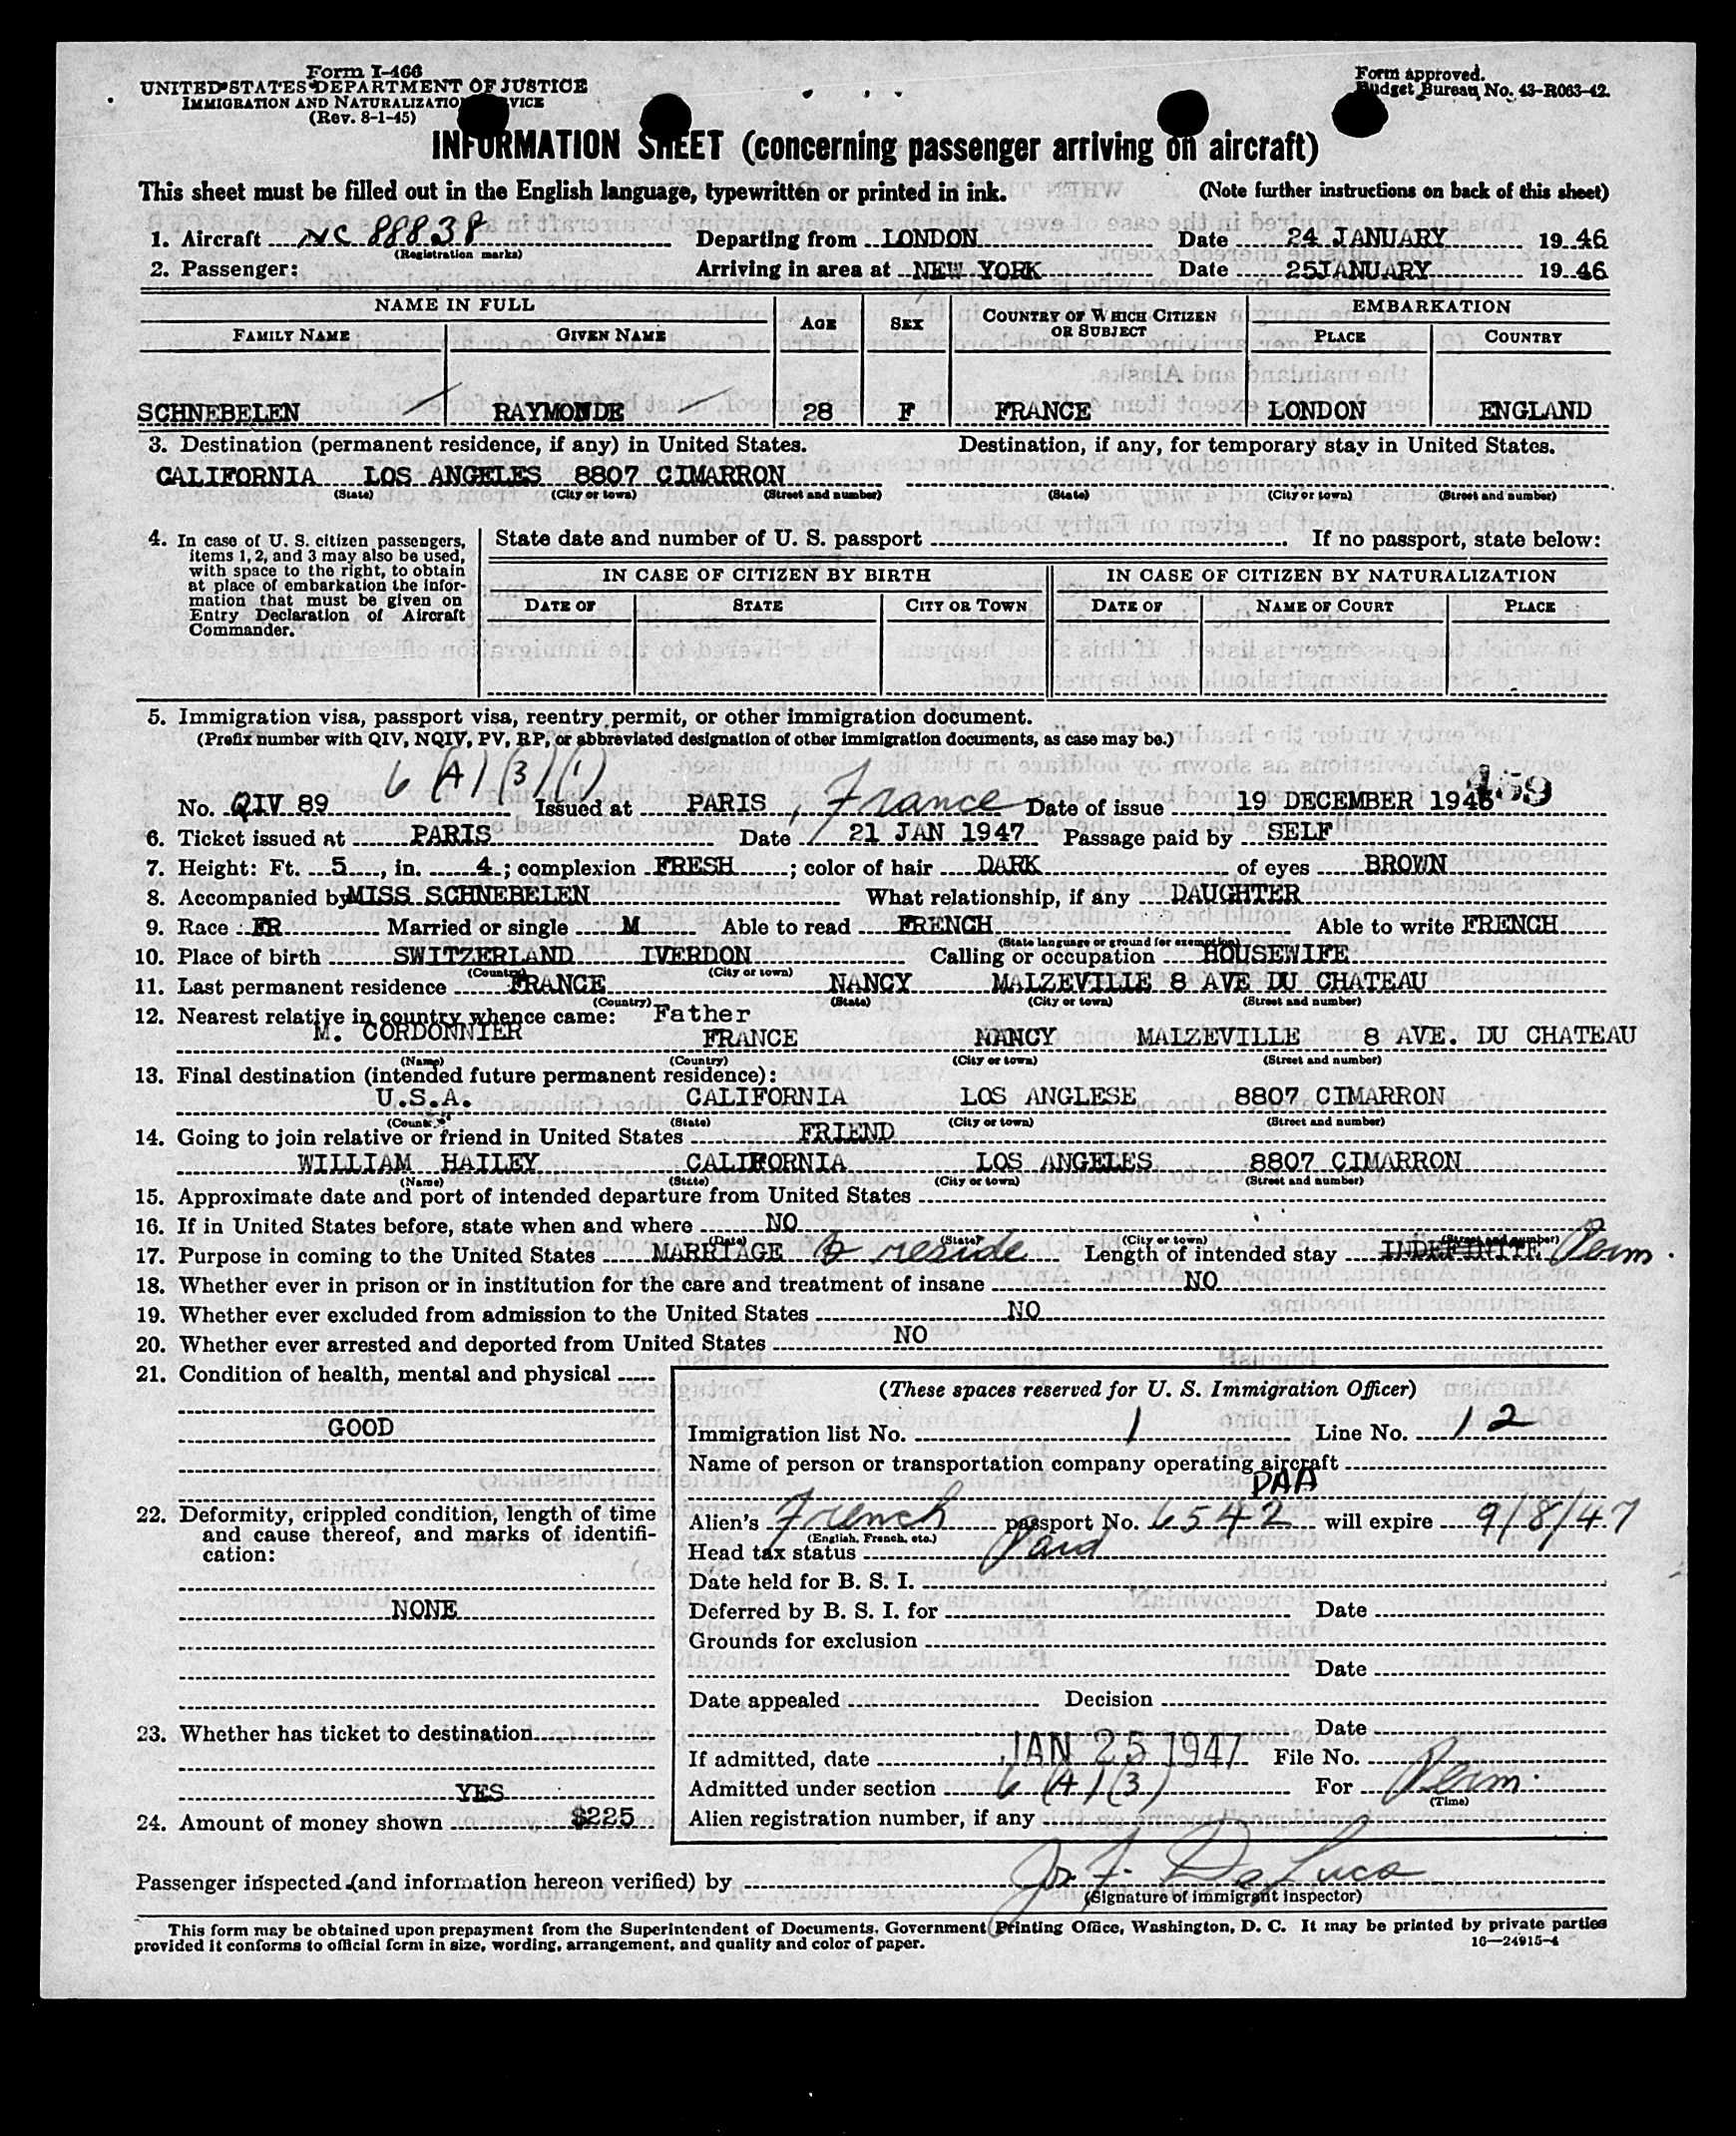 Form I-466
UNITED STATES DEPARTMENT OF JUSTICE
IMMIGRATION AND NATURALIZATION SERVICE
(Rev. 8-1-45)
Form approved.
Budget Bureau No. 43-R063-42.
INFORMATION SHEET (concerning passenger arriving on aircraft)
This sheet must be filled out in the English language, typewritten or printed in ink. (Note further instructions on back of this sheet)
1. Aircraft NC 88838 Departing from LONDON Date 24 JANUARY 19 46
(Registration marks)
2. Passenger: Arriving in area at NEW YORK Date 25JANUARY 19 46
NAME IN FULL AGE SEX COUNTRY OF WHICH CITIZEN OR SUBJECT EMBARKATION
FAMILY NAME GIVEN NAME PLACE COUNTRY
SCHNEBELEN RAYMONDE 28 F FRANCE LONDON ENGLAND
3. Destination (permanent residence, if any) in United States. Destination, if any, for temporary stay in United States.
CALIFORNIA LOS ANGELES 8807 CIMARRON
(State) (City or town) (Street and number) (State) (City or town) (Street and number)
4. In case of U. S. citizen passengers,
items 1, 2, and 3 may also be used,
with space to the right, to obtain
at place of embarkation the infor-
mation that must be given on
Entry Declaration of Aircraft
Commander.
State date and number of U. S. passport If no passport, state below:
IN CASE OF CITIZEN BY BIRTH IN CASE OF CITIZEN BY NATURALIZATION
DATE OF STATE CITY OR TOWN DATE OF NAME OF COURT PLACE
5. Immigration visa, passport visa, reentry permit, or other immigration document.
(Prefix number with QIV, NQIV, PV, RP, or abbreviated designation of other immigration documents, as case may be.)
6 (A) (3) (1) 459
No. QIV 89 Issued at PARIS, France Date of issue 19 DECEMBER 1946
6. Ticket issued at PARIS Date 21 JAN 1947 Passage paid by SELF
7. Height: Ft. 5, in. 4; complexion FRESH; color of hair DARK of eyes BROWN
8. Accompanied by MISS SCHNEBELEN What relationship, if any DAUGHTER
9. Race FR Married or single M Able to read FRENCH Able to write FRENCH
(State language or ground for exemption)
10. Place of birth SWITZERLAND IVERDON Calling or occupation HOUSEWIFE
(Country) (City or town)
11. Last permanent residence FRANCE NANCY MALZEVILLE 8 AVE DU CHATEAU
(Country) (State) (City or town) (Street and number)
12. Nearest relative in country whence came: Father
M. CORDONNIER FRANCE NANCY MALZEVILLE 8 AVE. DU CHATEAU
(Name) (Country) (City or town) (Street and number)
13. Final destination (intended future permanent residence):
U.S.A. CALIFORNIA LOS ANGLESE 8807 CIMARRON
(Country) (State) (City or town) (Street and number)
14. Going to join relative or friend in United States FRIEND
WILLIAM HAILEY CALIFORNIA LOS ANGELES 8807 CIMARRON
(Name) (State) (City or town) (Street and number)
15. Approximate date and port of intended departure from United States
16. If in United States before, state when and where NO
(Date) (State) (City or town) (Street and number)
17. Purpose in coming to the United States MARRIAGE to reside Length of intended stay INDEFINITE Perm.
18. Whether ever in prison or in institution for the care and treatment of insane NO
19. Whether ever excluded from admission to the United States NO
20. Whether ever arrested and deported from United States NO
21. Condition of health, mental and physical
GOOD
22. Deformity, crippled condition, length of time
and cause thereof, and marks of identifi-
cation:
NONE
23. Whether has ticket to destination
YES
24. Amount of money shown $225
(These spaces reserved for U. S. Immigration Officer)
Immigration list No. 1 Line No. 12
Name of person or transportation company operating aircraft
PAA
Alien's French passport No. 6542 will expire 9/8/47
(English, French, etc.)
Head tax status Paid
Date held for B. S. I.
Deferred by B. S. I. for Date
Grounds for exclusion
Date
Date appealed Decision
Date
If admitted, date JAN 25 1947 File No.
Admitted under section 6 (A) (3) For Perm.
(Time)
Alien registration number, if any
Passenger inspected (and information hereon verified) by Jos. F. De Luca
(Signature of immigrant inspector)
This form may be obtained upon prepayment from the Superintendent of Documents, Government Printing Office, Washington, D. C. It may be printed by private parties
provided it conforms to official form in size, wording, arrangement, and quality and color of paper. 16—24915-4